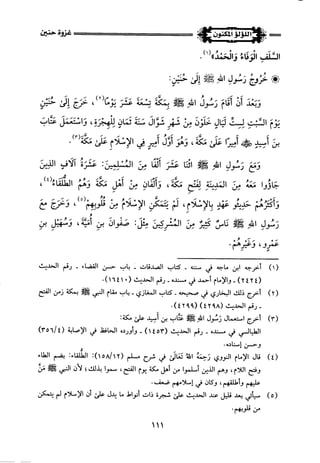 اللؤلؤ المكنون
غزوة حنين
السَّلَفِ الوَفَاءُ وَالحَمْدُ»(١).
* خُرُوجُ رَسُولِ اللهِ ﷺ إِلَى حُنَيْنٍ:
وَبَعْدَ أَنْ أَقَامَ رَسُولُ اللهِ ﷺ بِمَكَّةَ تِسْعَةَ عَشَرَ يَوْمًا(٢)، خَرَجَ إِلَى حُنَيْنٍ
يَوْمَ السَّبْتِ لِسِتِّ لَيَالٍ خَلَوْنَ مِنْ شَهْرِ شَوَّالَ سَنَةَ ثَمَانٍ لِلْهِجْرَةِ، وَاسْتَعْمَلَ عَتَّابَ
بنَ أَسِيدٍ أَمِيرًا عَلَى مَكَّةَ، وَهُوَ أَوَّلُ أَمِيرٍ فِي الإِسْلَامِ عَلَى مَكَّةَ(٣).
وَمَعَ رَسُولِ اللهِ ﷺ اثْنَا عَشَرَ أَلْفًا مِنَ المُسْلِمِينَ: عَشَرَةُ آلَافٍ الذِينَ
جَاؤُوا مَعَهُ مِنَ المَدِينَةِ لِفَتْحِ مَكَّةَ، وَأَلْفَانِ مِنْ أَهْلِ مَكَّةَ وَهُمُ الطُّلَقَاءُ(٤)،
وَأَكْثَرُهُمْ حَدِيثُو عَهْدٍ بِالإِسْلَامِ، لَمْ يَتَمَكَّنِ الإِسْلَامُ مِنْ قُلُوبِهِمْ(٥)، وَخَرَجَ مَعَ
رَسُولِ اللهِ ﷺ نَاسٌ كَثِيرٌ مِنَ المُشْرِكِينَ مِثْلُ: صَفْوَانَ بنِ أُمَيَّةَ، وَسُهَيْلِ بنِ
عَمْرٍو، وَغَيْرِهُمْ.
(١) أخرجه ابن ماجه في سننه ـ كتاب الصدقات ـ باب حسن القضاء ـ رقم الحديث
(٢٤٢٤) ـ والإمام أحمد في مسنده ـ رقم الحديث (١٦٤١٠).
(٢) أخرج ذلك البخاري في صحيحه ـ كتاب المغازي ـ باب مقام النبي ﷺ بمكة زمن الفتح
ـ رقم الحديث (٤٢٩٨) (٤٢٩٩).
(٣) أخرج استعمال رَسُول اللهِ ﷺ عتَّاب بن أَسيد على مكة:
الطيالسي في مسنده ـ رقم الحديث (١٤٥٣) ـ وأورده الحافظ في الإصابة (٣٥٦/٤)
وحسن إسناده.
(٤) قال الإمام النووي رَحِمَهُ اللهُ تَعَالَىٰ في شرح مسلم (١٥٨/١٢): الطُّلَقاء: بضم الطاء
وفتح اللام، وهم الذين أسلموا من أهل مكة يوم الفتح، سموا بذلك؛ لأن النبي ﷺ مَنَّ
عليهم وأطلقهم، وكان في إسلامهم ضعف.
(٥) سيأتي بعد قليل عند الحديث على شجرة ذات أنواط ما يدل على أن الإسلام لم يتمكن
من قلوبهم.
١١١